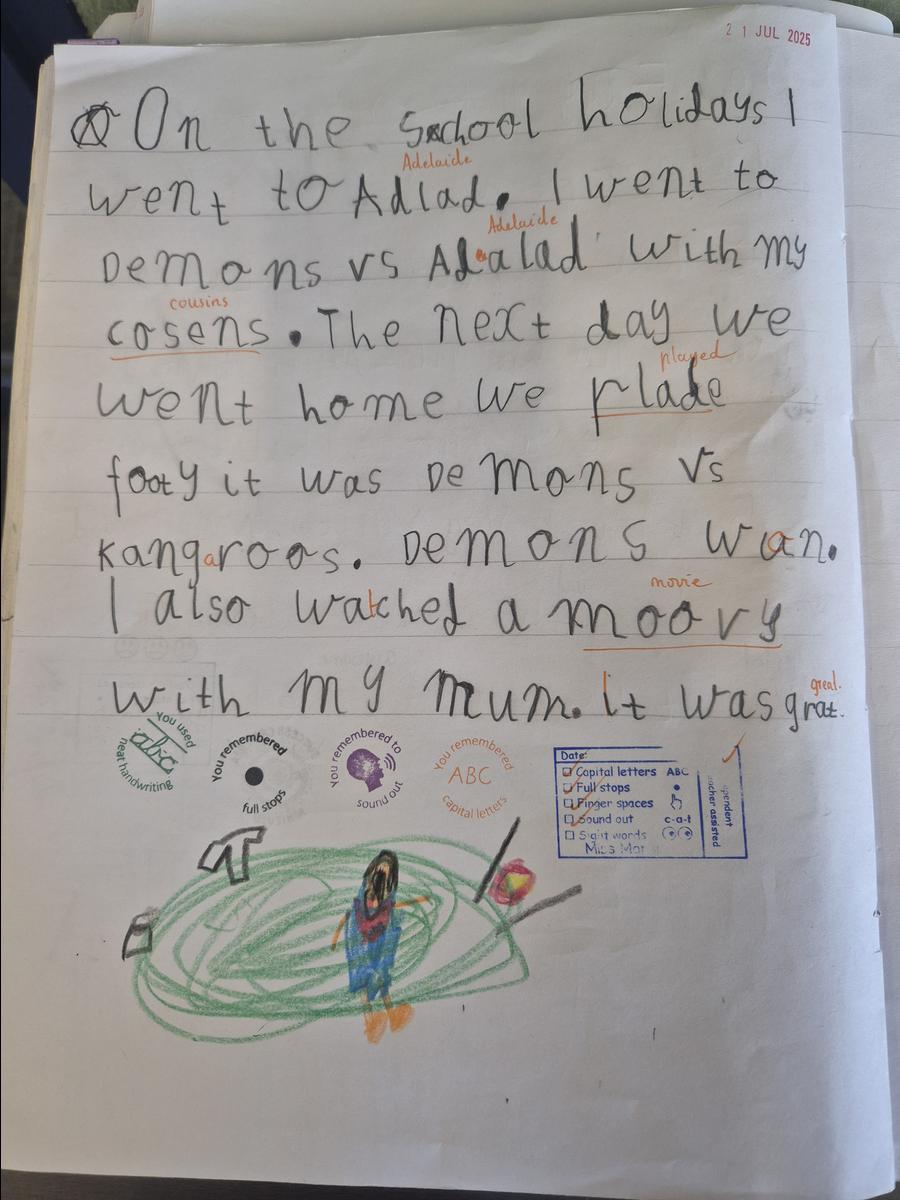 21 JUL 2025
On the School holidays I
Adelaide
went to Adlad. I went to
Adelaide
Demons vs Adalad with my
cousins
cosens. The next day we
played
went home we plade
footy it was Demons Vs
Kangaroos. Demons won.
movie
I also watched a moovy
great.
with my mum. It was grat.
You used abc neat handwriting
You remembered full stops
You remembered to sound out
You remembered ABC capital letters
Date:
Capital letters ABC
Full stops
Finger spaces
Sound out c-a-t
Sight words
Miss